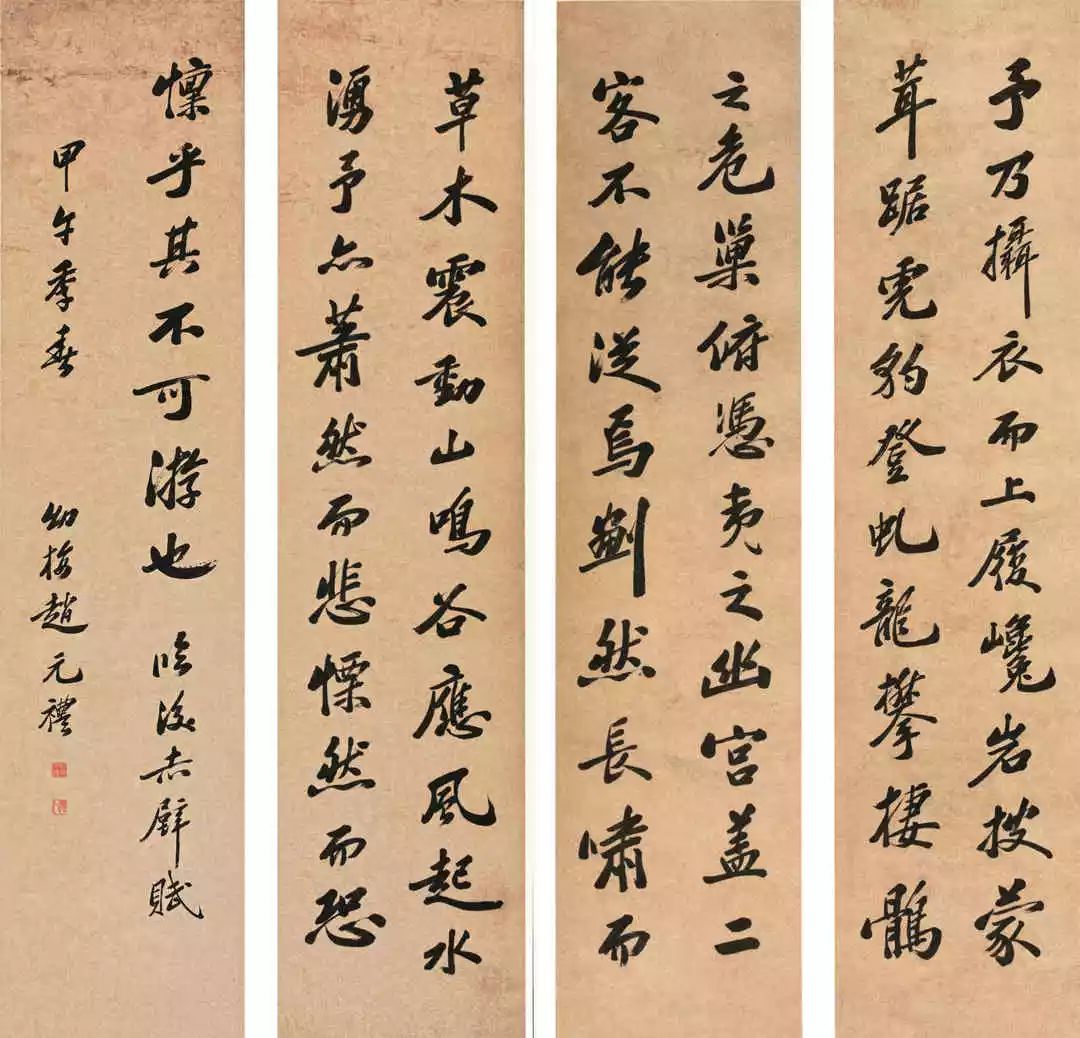 予乃攝衣而上履巉岩披蒙
茸踞虎豹登虬龍攀棲鶻
之危巢俯憑夷之幽宮盖二
客不能從焉劃然長嘯而
草木震動山鳴谷應風起水
湧予亦蕭然而悲慄然而恐
懔乎其不可游也 臨後赤壁賦
甲午季春 幼梅趙元禮